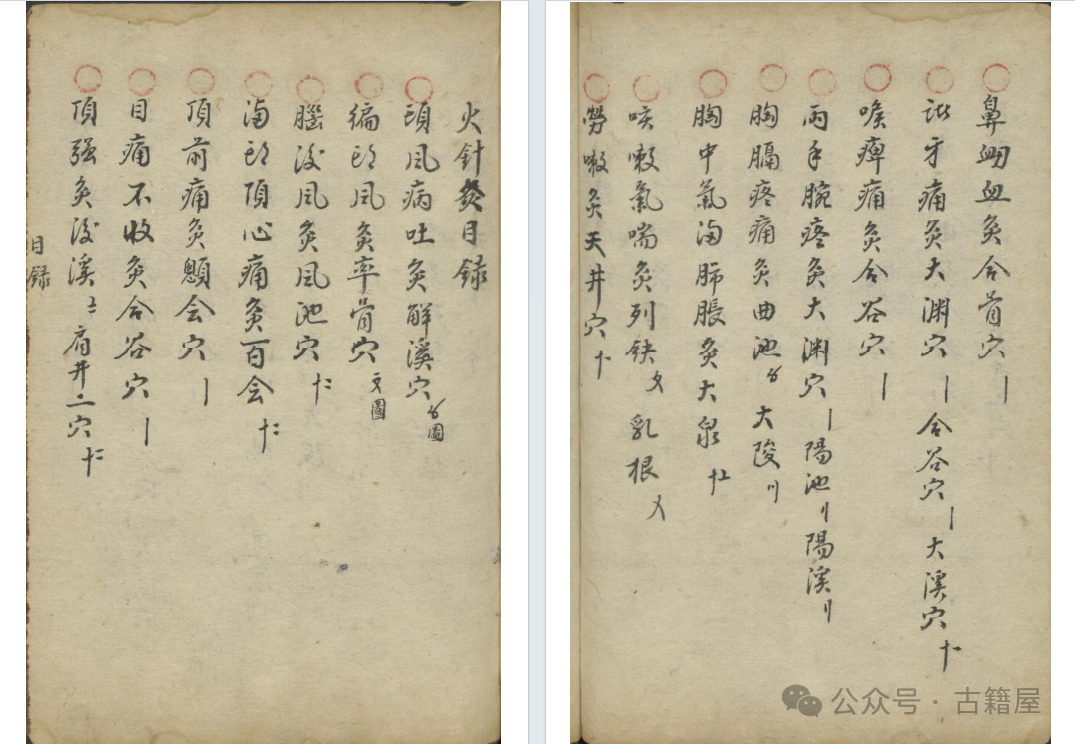 火針灸目録
頭風病吐灸解溪穴 圖
徧頭風灸率骨穴 圖
腦後風灸風池穴 十二
満頭頂心痛灸百会穴 十二
頂前痛灸顖会穴 〡
目痛不收灸合谷穴 〡
頂强灸後溪 肩井二穴 十二
目録
鼻衂血灸合骨穴 〡
牙痛灸大渊穴 〡 合谷穴 〡 大溪穴 十
喉痺痛灸合谷穴 〡
両手腕疼灸大渊穴 〡 陽池 〢 陽溪 〢
胸膈疼痛灸曲池 大陵 〢
胸中氣満肺脹灸大泉
咳嗽氣喘灸列缺 〤 乳根 〤
勞嗽灸天井穴 十
公众号 · 古籍屋